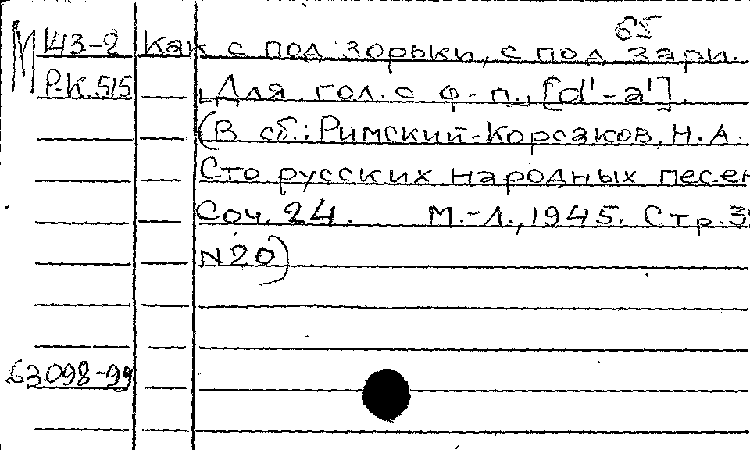 65
М 143-2 Как с под зорьки, с под зари.
Р.К.515 Для гол. с ф-п., [d'-a'].
(В сб.: Римский-Корсаков, Н.А.
Сто русских народных песен
Соч. 24. М.-Л., 1945. Стр.
N20)
63098-99